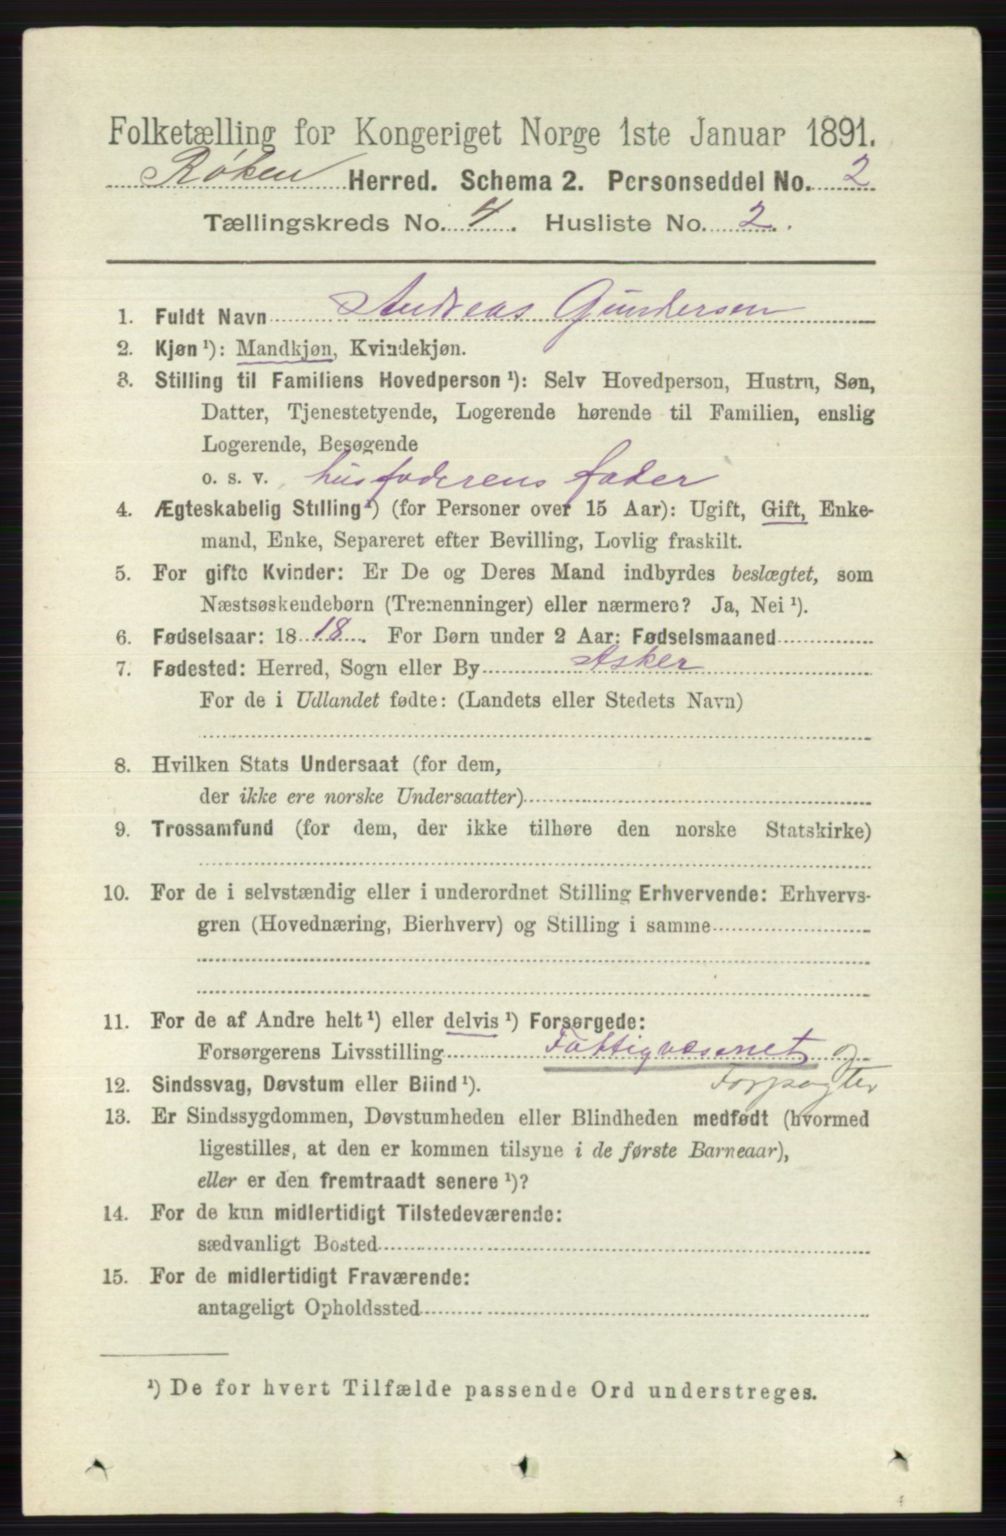 Folketælling for Kongeriget Norge 1ste Januar 1891.
Røken Herred. Schema 2. Personseddel No. 2
Tællingskreds No. 4. Husliste No. 2.
1. Fuldt Navn Andreas Gundersen
2. Kjøn ¹): Mandkjøn, Kvindekjøn.
3. Stilling til Familiens Hovedperson ¹): Selv Hovedperson, Hustru, Søn,
Datter, Tjenestetyende, Logerende hørende til Familien, enslig
Logerende, Besøgende
o. s. v. husfaderens fader
4. Ægteskabelig Stilling ¹) (for Personer over 15 Aar): Ugift, Gift, Enke-
mand, Enke, Separeret efter Bevilling, Lovlig fraskilt.
5. For gifte Kvinder: Er De og Deres Mand indbyrdes beslægtet, som
Næstsøskendebørn (Tremenninger) eller nærmere? Ja, Nei ¹).
6. Fødselsaar: 18 18. For Børn under 2 Aar: Fødselsmaaned
7. Fødested: Herred, Sogn eller By Asker
For de i Udlandet fødte: (Landets eller Stedets Navn)
8. Hvilken Stats Undersaat (for dem,
der ikke ere norske Undersaatter)
9. Trossamfund (for dem, der ikke tilhøre den norske Statskirke)
10. For de i selvstændig eller i underordnet Stilling Erhvervende: Erhvervs-
gren (Hovednæring, Bierhverv) og Stilling i samme
11. For de af Andre helt ¹) eller delvis ¹) Forsørgede:
Forsørgerens Livsstilling Fattigvæsenet og
12. Sindssvag, Døvstum eller Blind ¹). Forpagter
13. Er Sindssygdommen, Døvstumheden eller Blindheden medfødt (hvormed
ligestilles, at den er kommen tilsyne i de første Barneaar),
eller er den fremtraadt senere ¹)?
14. For de kun midlertidigt Tilstedeværende:
sædvanligt Bosted
15. For de midlertidigt Fraværende:
antageligt Opholdssted
¹) De for hvert Tilfælde passende Ord understreges.